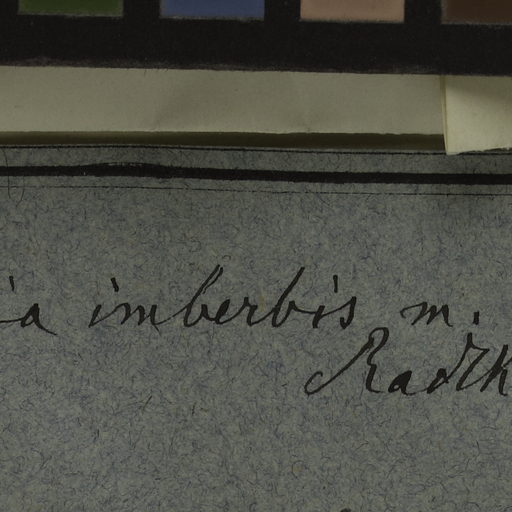 ia imberbis m.
Radlk